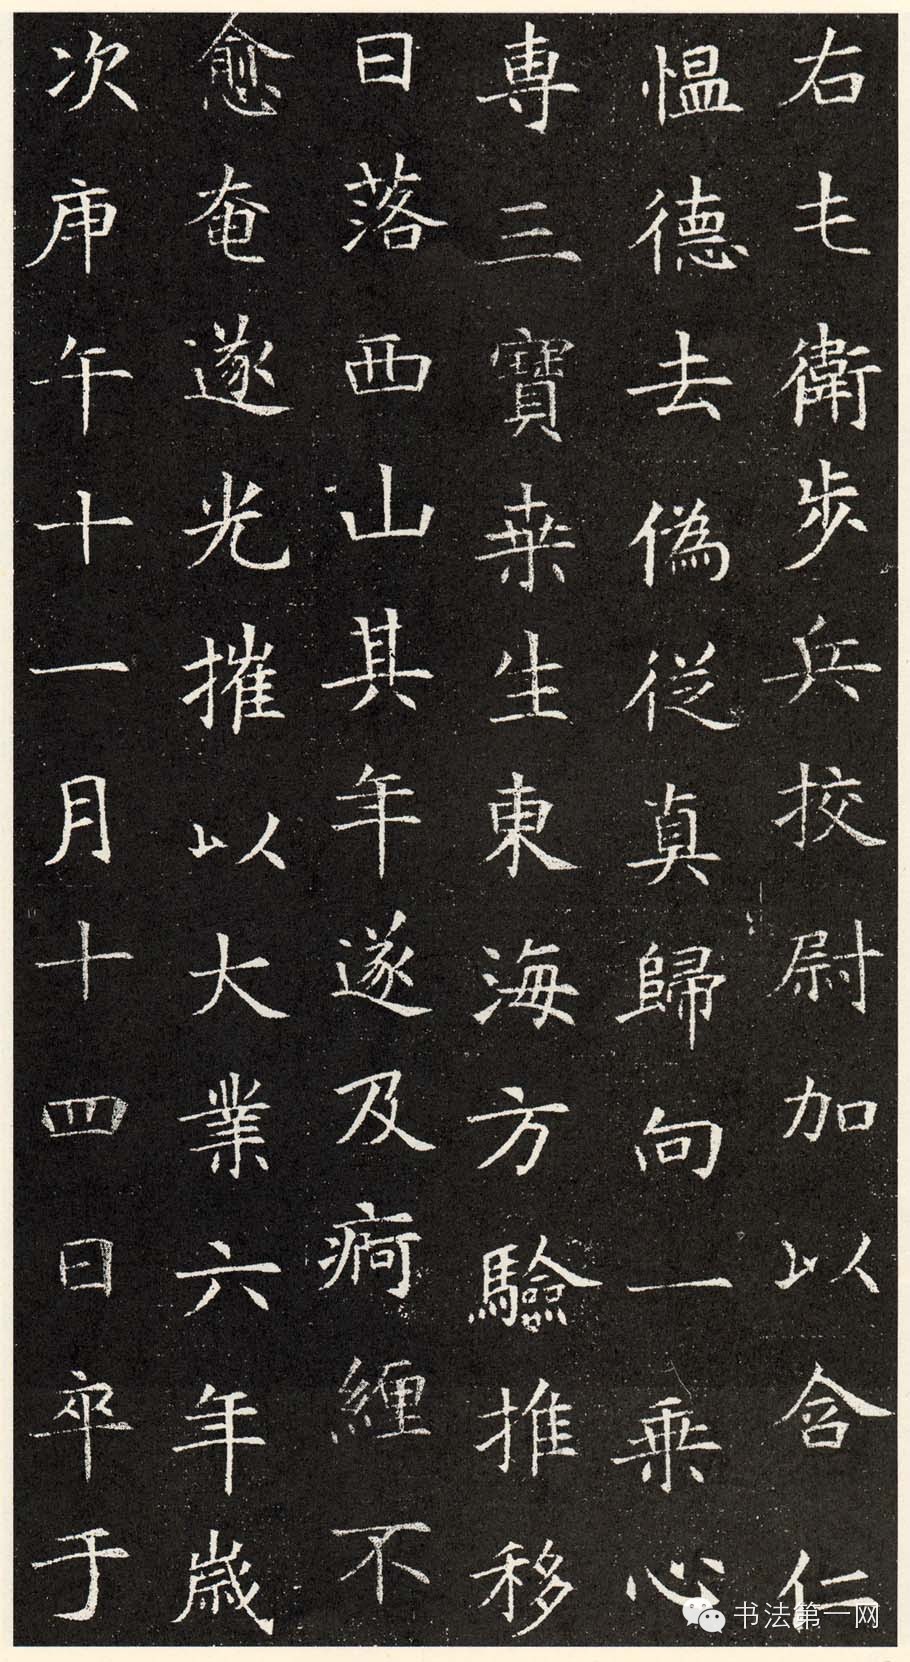 右屯衛步兵挍尉加以含仁
愠德去偽從真歸向一乘心
專三寶桒生東海方驗推移
日落西山其年遂及痾纏不
愈奄遂光摧以大業六年歲
次庚午十一月十四日卒于
书法第一网